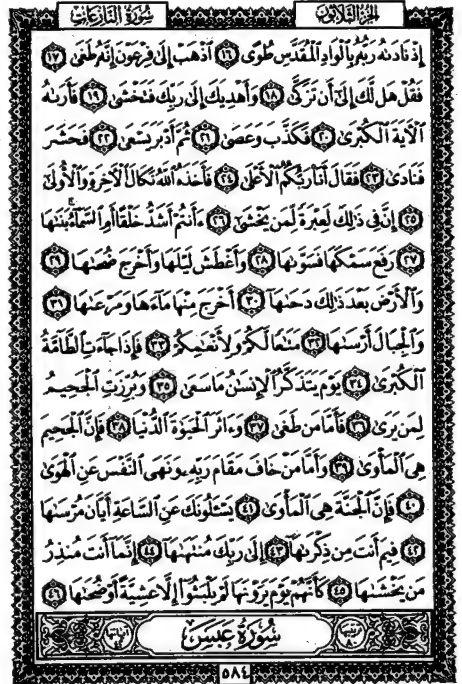 سورة النازعات
الجزء الثلاثون
إِذْ نَادَىٰهُ رَبُّهُۥ بِٱلْوَادِ ٱلْمُقَدَّسِ طُوًى ۝١٦ ٱذْهَبْ إِلَىٰ فِرْعَوْنَ إِنَّهُۥ طَغَىٰ ۝١٧
فَقُلْ هَل لَّكَ إِلَىٰٓ أَن تَزَكَّىٰ ۝١٨ وَأَهْدِيَكَ إِلَىٰ رَبِّكَ فَتَخْشَىٰ ۝١٩ فَأَرَىٰهُ
ٱلْءَايَةَ ٱلْكُبْرَىٰ ۝٢٠ فَكَذَّبَ وَعَصَىٰ ۝٢١ ثُمَّ أَدْبَرَ يَسْعَىٰ ۝٢٢ فَحَشَرَ
فَنَادَىٰ ۝٢٣ فَقَالَ أَنَا۠ رَبُّكُمُ ٱلْأَعْلَىٰ ۝٢٤ فَأَخَذَهُ ٱللَّهُ نَكَالَ ٱلْءَاخِرَةِ وَٱلْأُولَىٰٓ
۝٢٥ إِنَّ فِى ذَٰلِكَ لَعِبْرَةً لِّمَن يَخْشَىٰٓ ۝٢٦ ءَأَنتُمْ أَشَدُّ خَلْقًا أَمِ ٱلسَّمَآءُ ۚ بَنَىٰهَا
۝٢٧ رَفَعَ سَمْكَهَا فَسَوَّىٰهَا ۝٢٨ وَأَغْطَشَ لَيْلَهَا وَأَخْرَجَ ضُحَىٰهَا ۝٢٩
وَٱلْأَرْضَ بَعْدَ ذَٰلِكَ دَحَىٰهَآ ۝٣٠ أَخْرَجَ مِنْهَا مَآءَهَا وَمَرْعَىٰهَا ۝٣١
وَٱلْجِبَالَ أَرْسَىٰهَا ۝٣٢ مَتَٰعًا لَّكُمْ وَلِأَنْعَٰمِكُمْ ۝٣٣ فَإِذَا جَآءَتِ ٱلطَّآمَّةُ
ٱلْكُبْرَىٰ ۝٣٤ يَوْمَ يَتَذَكَّرُ ٱلْإِنسَٰنُ مَا سَعَىٰ ۝٣٥ وَبُرِّزَتِ ٱلْجَحِيمُ
لِمَن يَرَىٰ ۝٣٦ فَأَمَّا مَن طَغَىٰ ۝٣٧ وَءَاثَرَ ٱلْحَيَوٰةَ ٱلدُّنْيَا ۝٣٨ فَإِنَّ ٱلْجَحِيمَ
هِىَ ٱلْمَأْوَىٰ ۝٣٩ وَأَمَّا مَنْ خَافَ مَقَامَ رَبِّهِۦ وَنَهَى ٱلنَّفْسَ عَنِ ٱلْهَوَىٰ
۝٤٠ فَإِنَّ ٱلْجَنَّةَ هِىَ ٱلْمَأْوَىٰ ۝٤١ يَسْـَٔلُونَكَ عَنِ ٱلسَّاعَةِ أَيَّانَ مُرْسَىٰهَا
۝٤٢ فِيمَ أَنتَ مِن ذِكْرَىٰهَآ ۝٤٣ إِلَىٰ رَبِّكَ مُنتَهَىٰهَآ ۝٤٤ إِنَّمَآ أَنتَ مُنذِرُ
مَن يَخْشَىٰهَا ۝٤٥ كَأَنَّهُمْ يَوْمَ يَرَوْنَهَا لَمْ يَلْبَثُوٓا۟ إِلَّا عَشِيَّةً أَوْ ضُحَىٰهَا ۝٤٦
سُورَةُ عَبَسَ
٥٨٤